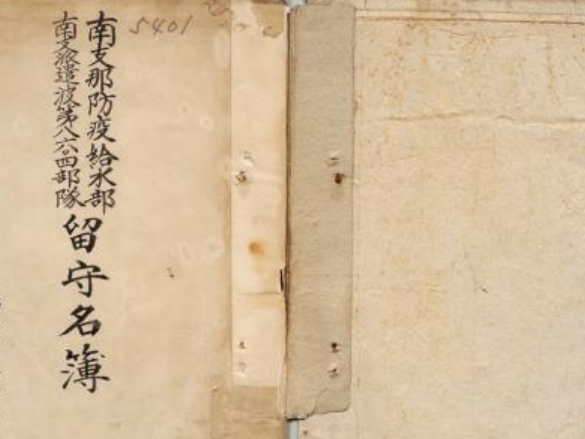 5401
南支那防疫給水部
南支派遣波第八六〇四部隊
留守名簿